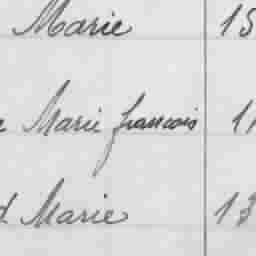 Marie 15
e Marie francois 11
d Marie 13